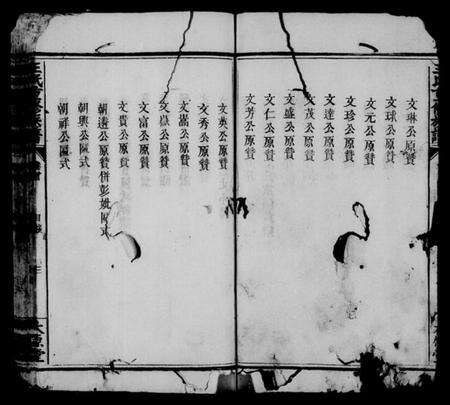 文琳公原贊
文球公原贊
文元公原贊
文珍公原贊
文達公原贊
文茂公原贊
文盛公原贊
文仁公原贊
文芳公原贊
文英公原贊
文秀公原贊
文嵩公原贊
文嶽公原贊
文富公原贊
文貴公原贊
朝遠公原贊併彭媯匾式
朝興公匾式
朝祥公匾式